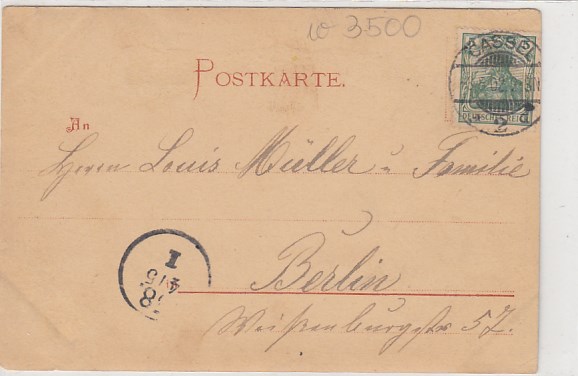 w 3500
POSTKARTE.
CASSEL
2
d
DEUTSCHES REICH
An
Herrn Louis Müller u Familie
Berlin
Weißenburgstr 57.
1